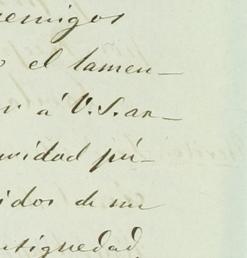 enemigos
o el lamen-
er á V. S. an-
uridad pú-
idos de su
ntiguedad